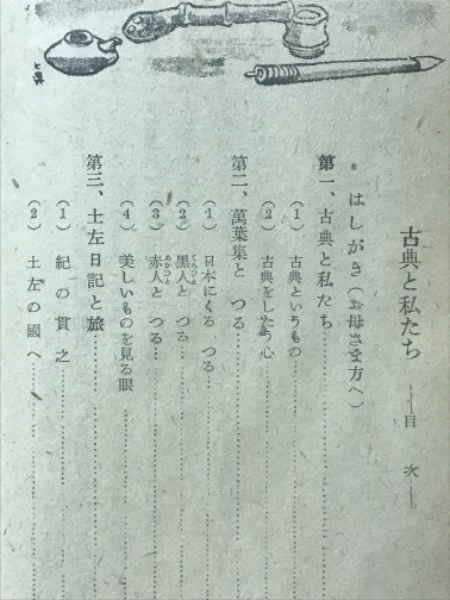 古典と私たち ―目次―
はしがき(お母さま方へ)
第一、古典と私たち
(1) 古典というもの
(2) 古典をしたう心
第二、萬葉集と つる
(1) 日本にくる つる
(2) 黒人と つる
(3) 赤人と つる
(4) 美しいものを見る眼
第三、土左日記と旅
(1) 紀の貫之
(2) 土左の國へ